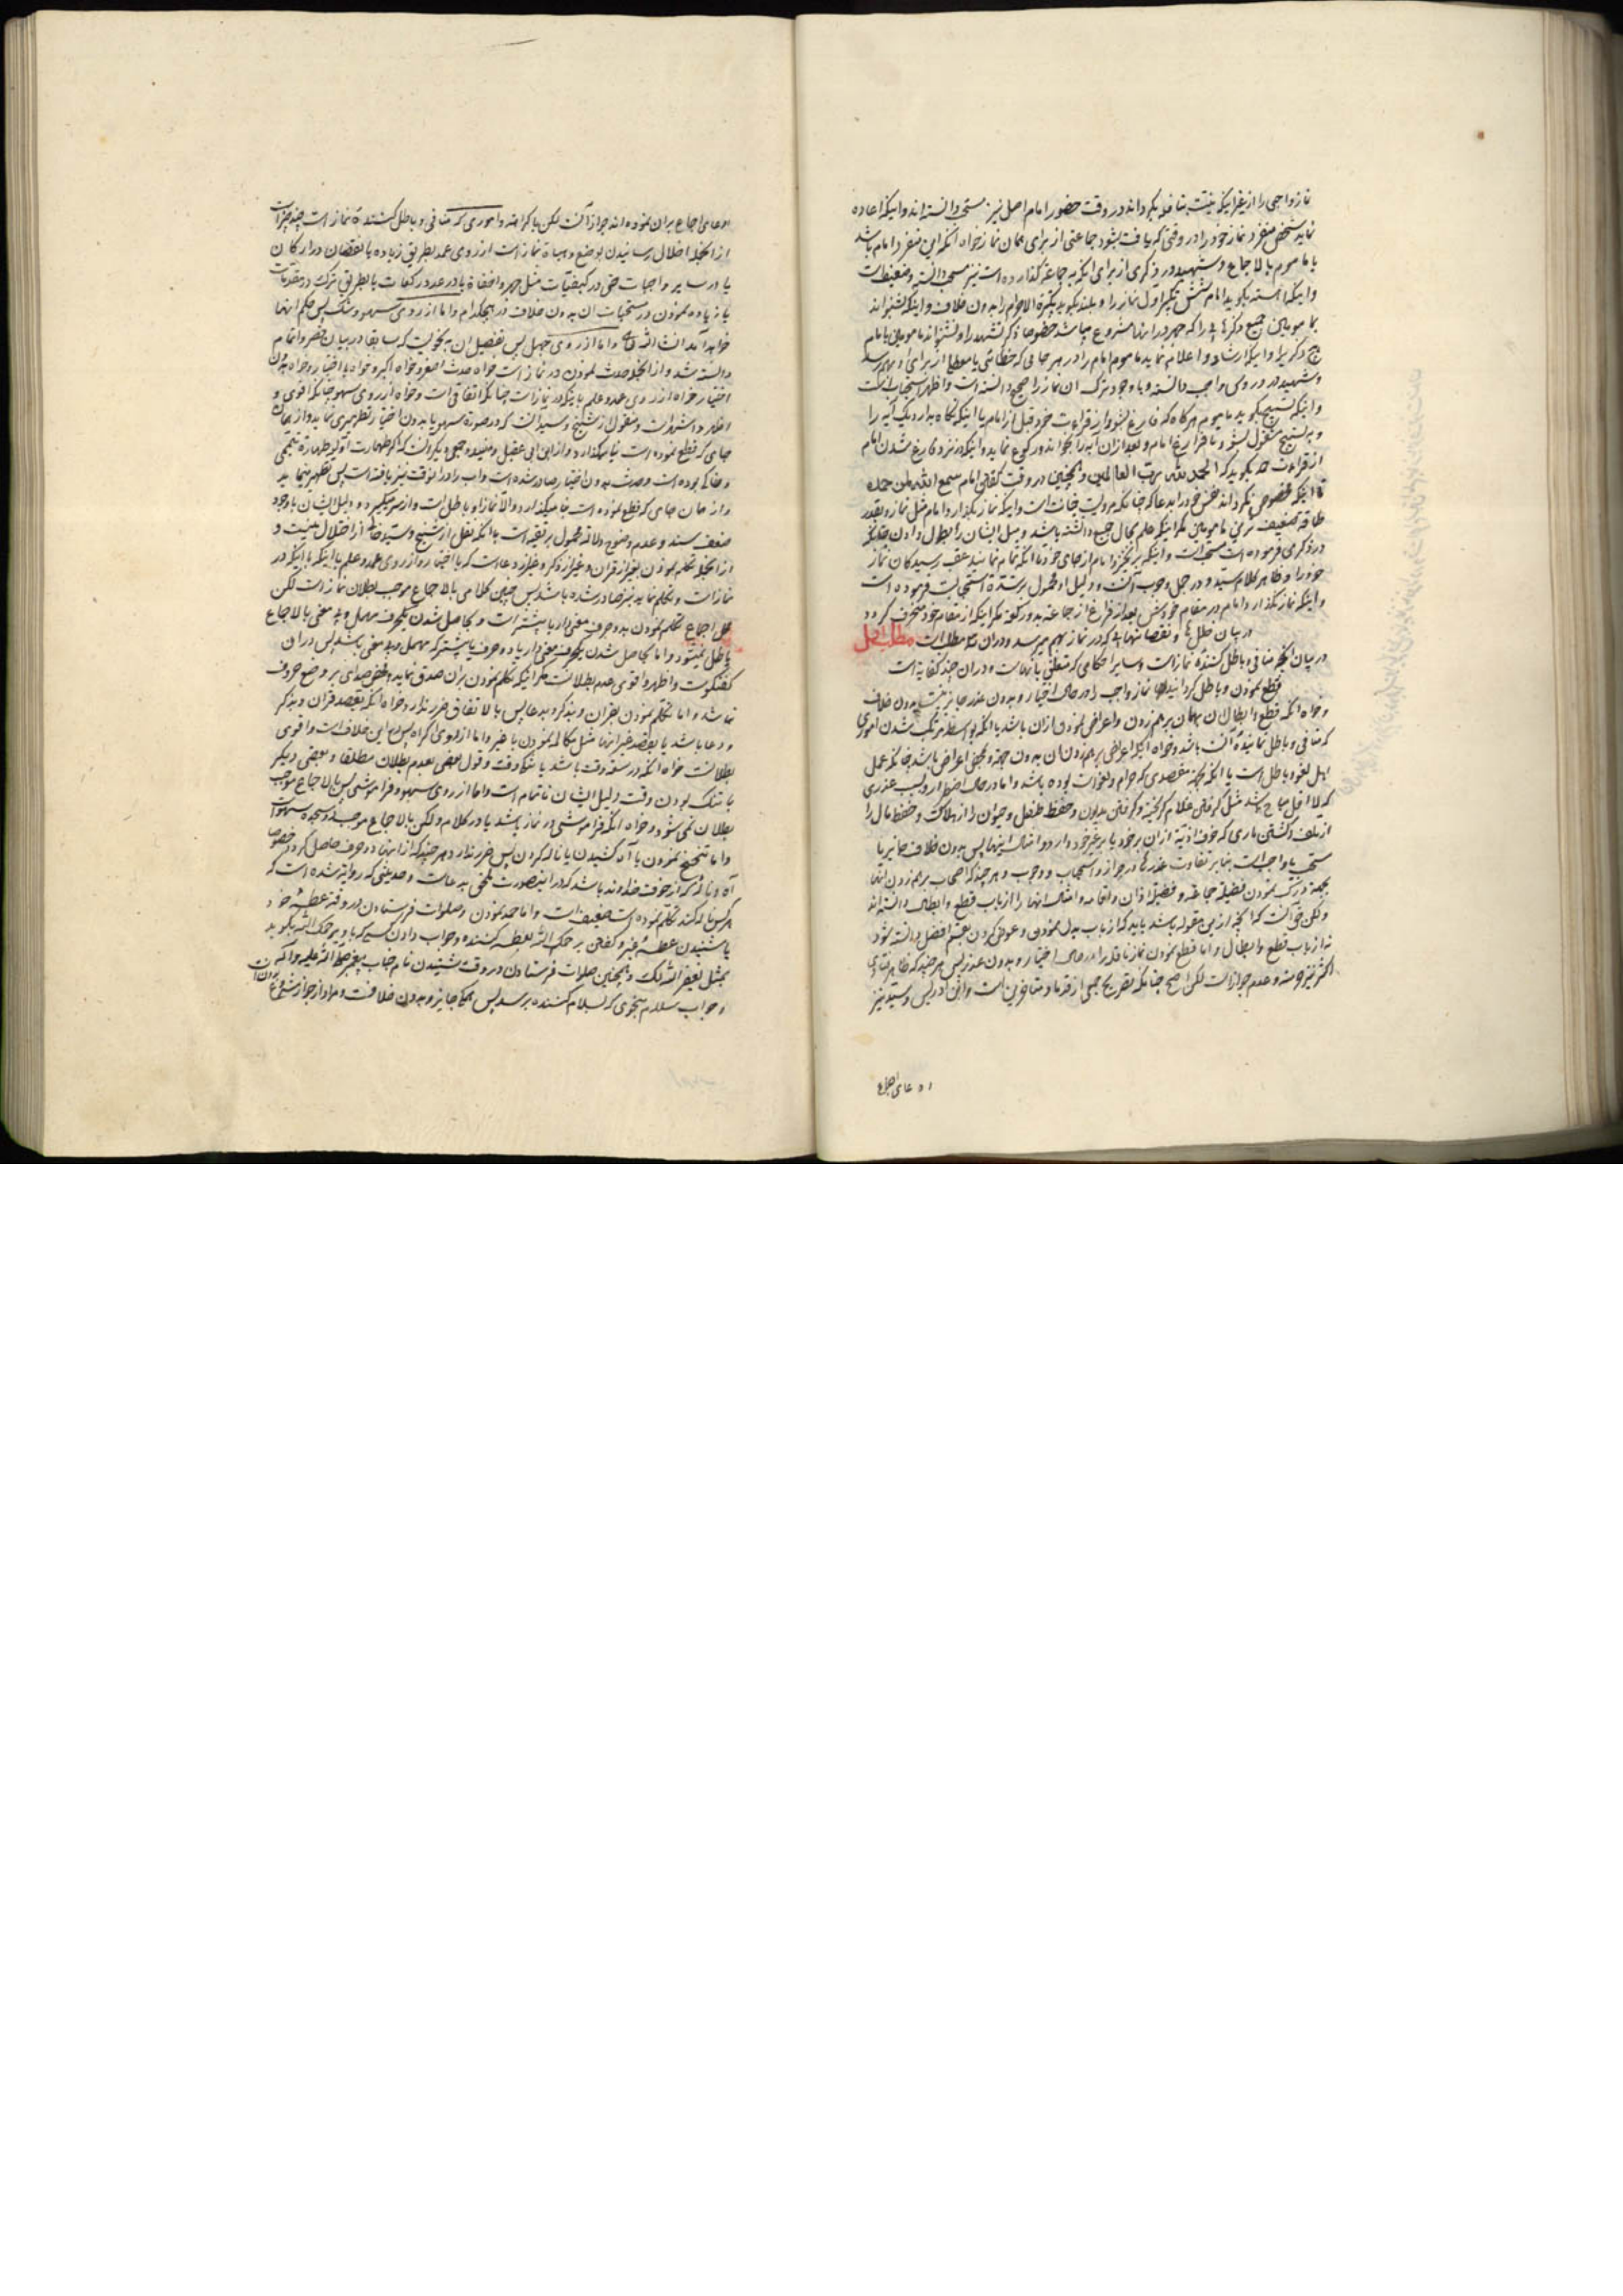 نماز واجبی را از غیر اینکه نیت بنافله بگرداند در وقت حضور امام اصل نیز مستحب دانسته‌اند و اینکه اعاده
نماید شخص منفرد نماز خود را در وقتی که یافت بشود جماعتی از برای همان نماز خواه آنکه این منفرد امام باشد
یا ماموم بالاجماع و شهید در ذکری از برای اینکه به جماعة گذارده است نیز مستحب دانسته و ضعیفست
و اینکه آهسته بگوید امام شش تکبیر اول نماز را و بلند بگوید تکبیرة الاحرام را بدون خلاف و اینکه بشنواند
بمامومین جمیع ذکرهایی را که جهر در آنها مشروع میباشد خصوصا ذکر تشهد را و نشنواند ماموم بامام
هیچ ذکری را و اینکه ارشاد و اعلام نماید ماموم امام را در هر جایی که خطائی از برای او بهم رسد
و شهید در دروس واجب دانسته و با وجود ترک آن نماز را صحیح دانسته است و اظهر استحباب آنست
و اینکه تسبیح بگوید ماموم هرگاه که فارغ بشود از قراءت خود قبل از امام یا اینکه نگاه بدارد یک آیه را
و به تسبیح مشغول بشود تا فراغ امام و بعد از آن آیه را بخواند و رکوع نماید و اینکه در نزد فارغ شدن امام
از قراءت حمد بگوید که الحمد لله رب العالمین و همچنین در وقت گفتن امام سمع الله لمن حمده
و اینکه مخصوص نگرداند نفس خود را به دعا که چنانکه مرویست خیانت است و اینکه نماز بگذارد امام مثل نماز و بقدر
طاقة ضعیف‌ترین مامومین مگر اینکه علم بحال جمیع داشته باشد و میل ایشان را بطول دادن چنانکه
در ذکری فرموده است مستحب است و اینکه برنخیزد امام از جای خود تا آنکه تمام نمایند عقب رسیدگان نماز
خود را و ظاهر کلام سید در جمل وجوب آنست و دلیل او محمول بر شدة استحبابست فرموده است
و اینکه نماز نگذارد امام در مقام خودش بعد از فراغ از جماعة بدو رکعة مگر اینکه از مقام خود منحرف گردد
در بیان خللها و نقصانهایی که در نماز بهم میرسد و در آن مطلب است مطلب اول
در بیان آنچه منافی و باطل کننده نماز است و سایر احکامی که متعلق باینهاست و در آن چند کفایة است
قطع نمودن و باطل گردانیدن نماز واجب را در حال اختیار و بدون عذر جایز نیست بدون خلاف
و خواه آنکه قطع و ابطال آن بهمان برهم زدن و اعراض نمودن از آن باشد یا آنکه بواسطه مرتکب شدن اموری
که منافی و باطل نماینده آنست باشد و خواه آنکه اعراض و برهم زدن آن بدون جهة و محض اعراض باشد چنانکه عمل
اهل لغو و باطل است یا آنکه بجهة مقصدی که حرام و لغو است بوده باشد و اما در حال اضطرار و بسبب عذری
که لااقل مباح باشد مثل گرفتن غلام گریخته و گرفتن مدیون و حفظ طفل و حیوان را از هلاکت و حفظ مال را
از تلف و کشتن ماری که خوف اذیة از آن بر خود یا بر غیر خود دارد و امثال اینها پس بدون خلاف جایز یا
مستحب یا واجب است بنابر تفاوت عذرها در جواز و استحباب و وجوب و هر چند که اصحاب برهم زدن آنها
بجهة درک نمودن فضیلة جماعة و فضیلة اذان و اقامه و امثال اینها را از باب قطع و ابطال دانسته‌اند
و لکن حق آنست که آنچه از این مقوله باشد باید که از باب بدل نمودن و عوض کردن بقسم افضل دانسته شود
نه از باب قطع و ابطال و اما قطع نمودن نماز نافله را در حال اختیار و بدون عذر پس هر چند که ظاهر فتاوی
اکثر نیز حرمة و عدم جواز است لکن اصح چنانکه تصریح جمعی از قدما و متاخرین است و ابن ادریس و سید نیز
ادعای اجماع
ادعای اجماع بر آن نموده‌اند جواز آنست لکن با کراهة و اموری که منافی و باطل کننده نماز است چند چیز است
از آنجمله اخلال رسانیدن بوضع و هیاة نماز است از روی عمد بطریق زیاده یا نقصان در ارکان
یا در سایر واجبات حتی در کیفیّات مثل جهر و اخفاة یا در عدد رکعات یا بطریق ترک در مقدمات
یا زیاده نمودن در مستحبات آن بدون خلاف در هیچکدام و اما از روی سهو و شک پس حکم آنها
خواهد آمد انشاء الله تعالی و اما از روی جهل پس تفصیل آن بنحویست که سابقا در بیان قصر و اتمام
دانسته شد و از آنجمله حدث نمودن در نماز است خواه حدث اصغر و خواه اکبر و خواه باختیار و خواه بدون
اختیار خواه از روی عمد و علم باینکه در نماز است چنانکه اتفاقی است و خواه از روی سهو چنانکه اقوی و
اظهر و اشهر است و منقول از شیخ و سید آنست که در صورة سهو یا بدون اختیار تطهیری نماید و از همان
جایی که قطع نموده است بنا بگذارد و از ابن ابی عقیل و مفید و جمعی دیگر آنست که اگر طهارت اولی طهارة تیممی
و خاکی بوده است و حدث بدون اختیار صادر شده است و آب را در آنوقت نیز یافته است پس تطهیر مینماید
و از همان جایی که قطع نموده است بنا میگذارد و الا نماز او باطل است و از سر میگیرد و دلیل ایشان با وجود
ضعف سند و عدم وضوح دلالة محمول بر تقیه است با آنکه نقل از شیخ و سید خالی از اختلال نیست و
از آنجمله تکلم نمودن بغیر از قرآن و غیر از ذکر و غیر از دعاست که با اختیار و از روی عمد و علم باینکه در
نماز است و تکلم نماید نیز صادر شده باشد پس چنین کلامی بالاجماع موجب بطلان نماز است لکن
محل اجماع تکلم نمودن بدو حرف معنی‌دار یا بیشتر است و بحاصل شدن یکحرف مهمل و بی معنی بالاجماع
باطل نمیشود و اما بحاصل شدن یکحرف معنی‌دار یا دو حرف یا بیشتر که مهمل و بی معنی باشد پس در آن
گفتگوست و اظهر و اقوی عدم بطلانست مگر اینکه تکلم نمودن بر آن صدق نماید و محض صدای بر وضع حروف
نباشد و اما تکلم نمودن بقرآن و بذکر و بدعا پس بالاتفاق ضرر ندارد خواه آنکه بقصد قرآن و بذکر
و دعا باشد یا بقصد غیر آنها مثل مکالمه نمودن با غیر و اما از روی اکراه پس در آن خلاف است و اقوی
بطلانست خواه آنکه در سعه وقت باشد یا تنگی وقت و قول بعضی بعدم بطلان مطلقا و بعضی دیگر
با تنگ بودن وقت دلیل ایشان ناتمام است و اما از روی سهو و فراموشی پس بالاجماع موجب
بطلان نمی شود و خواه آنکه فراموشی در نماز باشد یا در کلام و لکن بالاجماع موجب دو سجده سهو است
و اما تنحنح نمودن یا آه کشیدن یا ناله کردن پس ضرر ندارد هر چند که از آنها دو حرف حاصل گردد خصوصا
آه و ناله که از خوف خداوند باشد که در اینصورت ملحق بدعاست و حدیثی که روایة شده است که
هر کس ناله کند تکلم نموده است ضعیف است و اما حمد نمودن و صلوات فرستادن در وقت عطسه خود
یا شنیدن عطسه غیر و گفتن یرحمک الله بعطسه کننده و جواب دادن کسی که باو یرحمک الله بگوید
بمثل یغفر الله لک و همچنین صلوات فرستادن در وقت شنیدن نام جناب پیغمبر صلی الله علیه و آله
و جواب سلام بنحوی که بسلام کننده برسد پس همگی جایز و بدون خلافست و مراد از جواز مشروع بودن آن